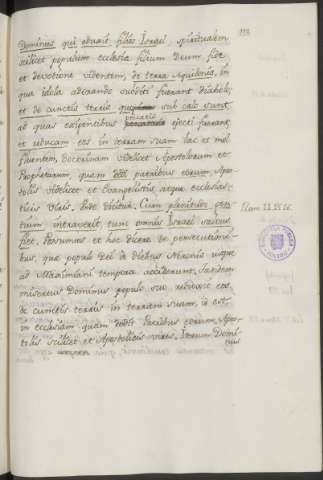 Dominus qui eduxit filios Israel, spiritualem
scilicet populum ecclesia filium Deum fide
et devotione videntem, de terra Aquilonis, in
qua idola adorando subditi fuerant diabolo;
et de cunctis terris sub calo sunt
ad quas exigentibus peccatis ejecti fuerant,
et reducam eos in terram suam lac et mel
fluentem, doctrinam videlicet Apostolorum et
Prophetarum, quam dedi patribus eorum, Apo-
stolis videlicet et Evangelistis, atque ecclesias-
ticis viris. Inde dicitur. Cum plenitudo gen-
tium intraverit, tum omnis Israel salvus
fiet. Possumus et hoc dicere de persecutioni-
bus, quae populi Dei a diebus Neronis usque
ad Maximiani tempora acciderunt. Tandem
misereris Dominus populo suo reduxit eos
de cunctis terris in terram suam, id est,
in ecclesiam quam dedit Patribus eorum, Apo-
stolis scilicet et Apostolicis viris. Iterum Domi-
nus